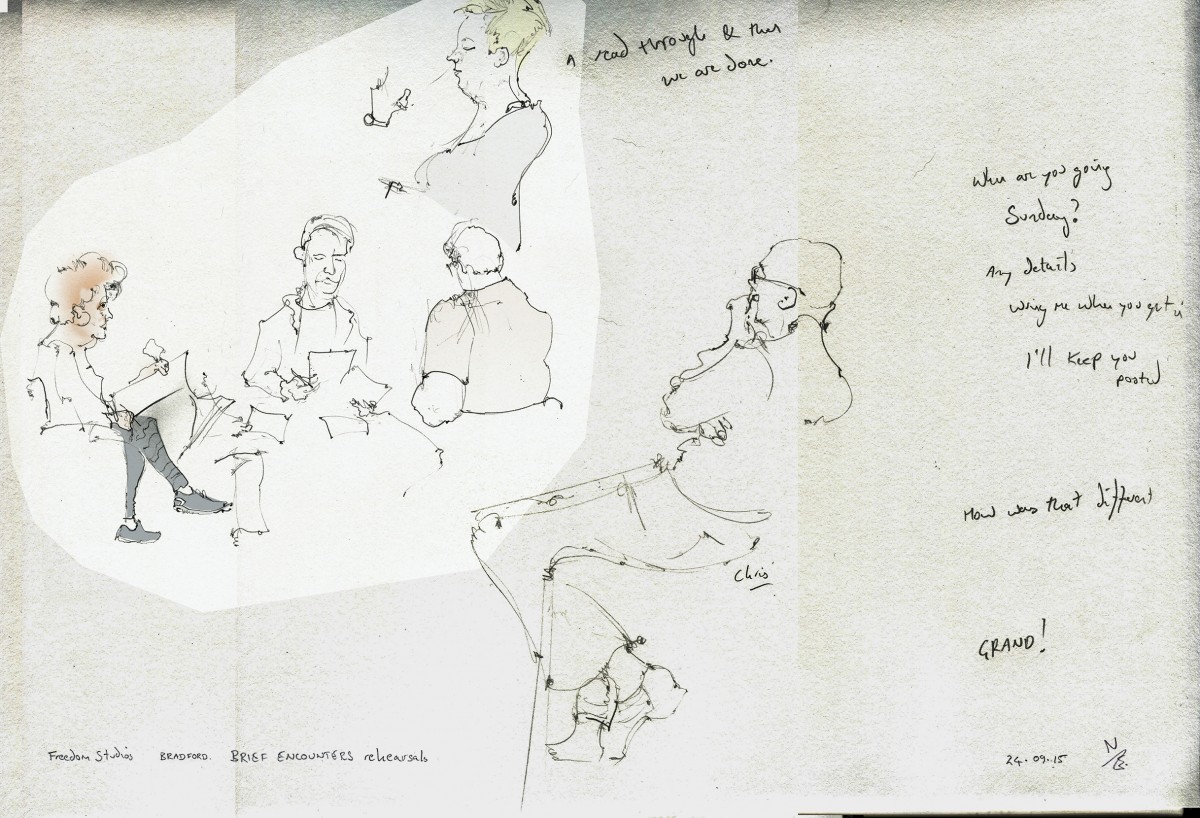 A read through & then
we are done.
When are you going
Sunday?
Any details
wring me when you get in
I'll keep you
posted
How was that different
GRAND!
Chris
Freedom Studios BRADFORD. BRIEF ENCOUNTERS rehearsals
24.09.15